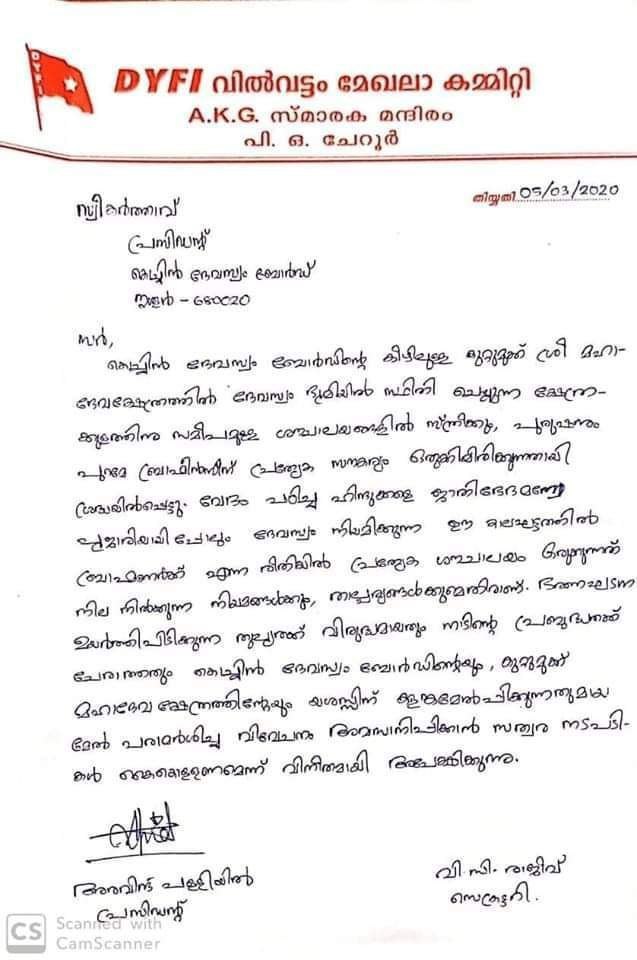 DYFI
DYFI വിൽവട്ടം മേഖലാ കമ്മിറ്റി
A.K.G. സ്മാരക മന്ദിരം
പി. ഒ. ചേറൂർ
തിയ്യതി 05/03/2020
സ്വീകർത്താവ്
പ്രസിഡന്റ്
കൊച്ചിൻ ദേവസ്വം ബോർഡ്
തൃശൂർ - 680020
സർ,
കൊച്ചിൻ ദേവസ്വം ബോർഡിന്റെ കീഴിലുള്ള കുറ്റുമുക്ക് ശ്രീ മഹാ-
ദേവക്ഷേത്രത്തിൽ ദേവസ്വം ഭൂമിയിൽ സ്ഥിതി ചെയ്യുന്ന ക്ഷേത്ര-
ക്കുളത്തിനു സമീപമുള്ള ശൗചാലയങ്ങളിൽ സ്ത്രീക്കും, പുരുഷനും
പുറമേ ബ്രാഹ്മിൺസിന് പ്രത്യേക സൗകര്യം ഒരുക്കിയിരിക്കുന്നതായി
ശ്രദ്ധയിൽപ്പെട്ടു. വേദം പഠിച്ച ഹിന്ദുക്കളെ ജാതിഭേദമന്യേ
പൂജാരിയായി പോലും ദേവസ്വം നിയമിക്കുന്ന ഈ കാലഘട്ടത്തിൽ
ബ്രാഹ്മണർക്ക് എന്ന രീതിയിൽ പ്രത്യേക ശൗചാലയം ഒരുക്കുന്നത്
നില നിൽക്കുന്ന നിയമങ്ങൾക്കും, താല്പര്യങ്ങൾക്കുമെതിരാണ്. ഭരണഘടന
ഉയർത്തിപിടിക്കുന്ന തുല്യതക്ക് വിരുദ്ധമായതും നാടിന്റെ പ്രബുദ്ധതക്ക്
ചേരാത്തതും കൊച്ചിൻ ദേവസ്വം ബോർഡിന്റെയും, കുറ്റുമുക്ക്
മഹാദേവ ക്ഷേത്രത്തിന്റേയും യശസ്സിന് കളങ്കമേൽപ്പിക്കുന്നതുമായ
മേൽ പരാമർശിച്ച വിവേചനം അവസാനിപ്പിക്കാൻ സത്വര നടപടി-
കൾ കൈകൊള്ളണമെന്ന് വിനീതമായി അപേക്ഷിക്കുന്നു.
അരവിന്ദ് പള്ളിയിൽ
പ്രസിഡന്റ്
വി. സി. രാജീവ്
സെക്രട്ടറി.
CS Scanned with
CamScanner